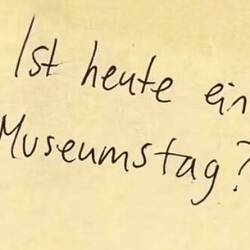 Ist heute ein
Museumstag?